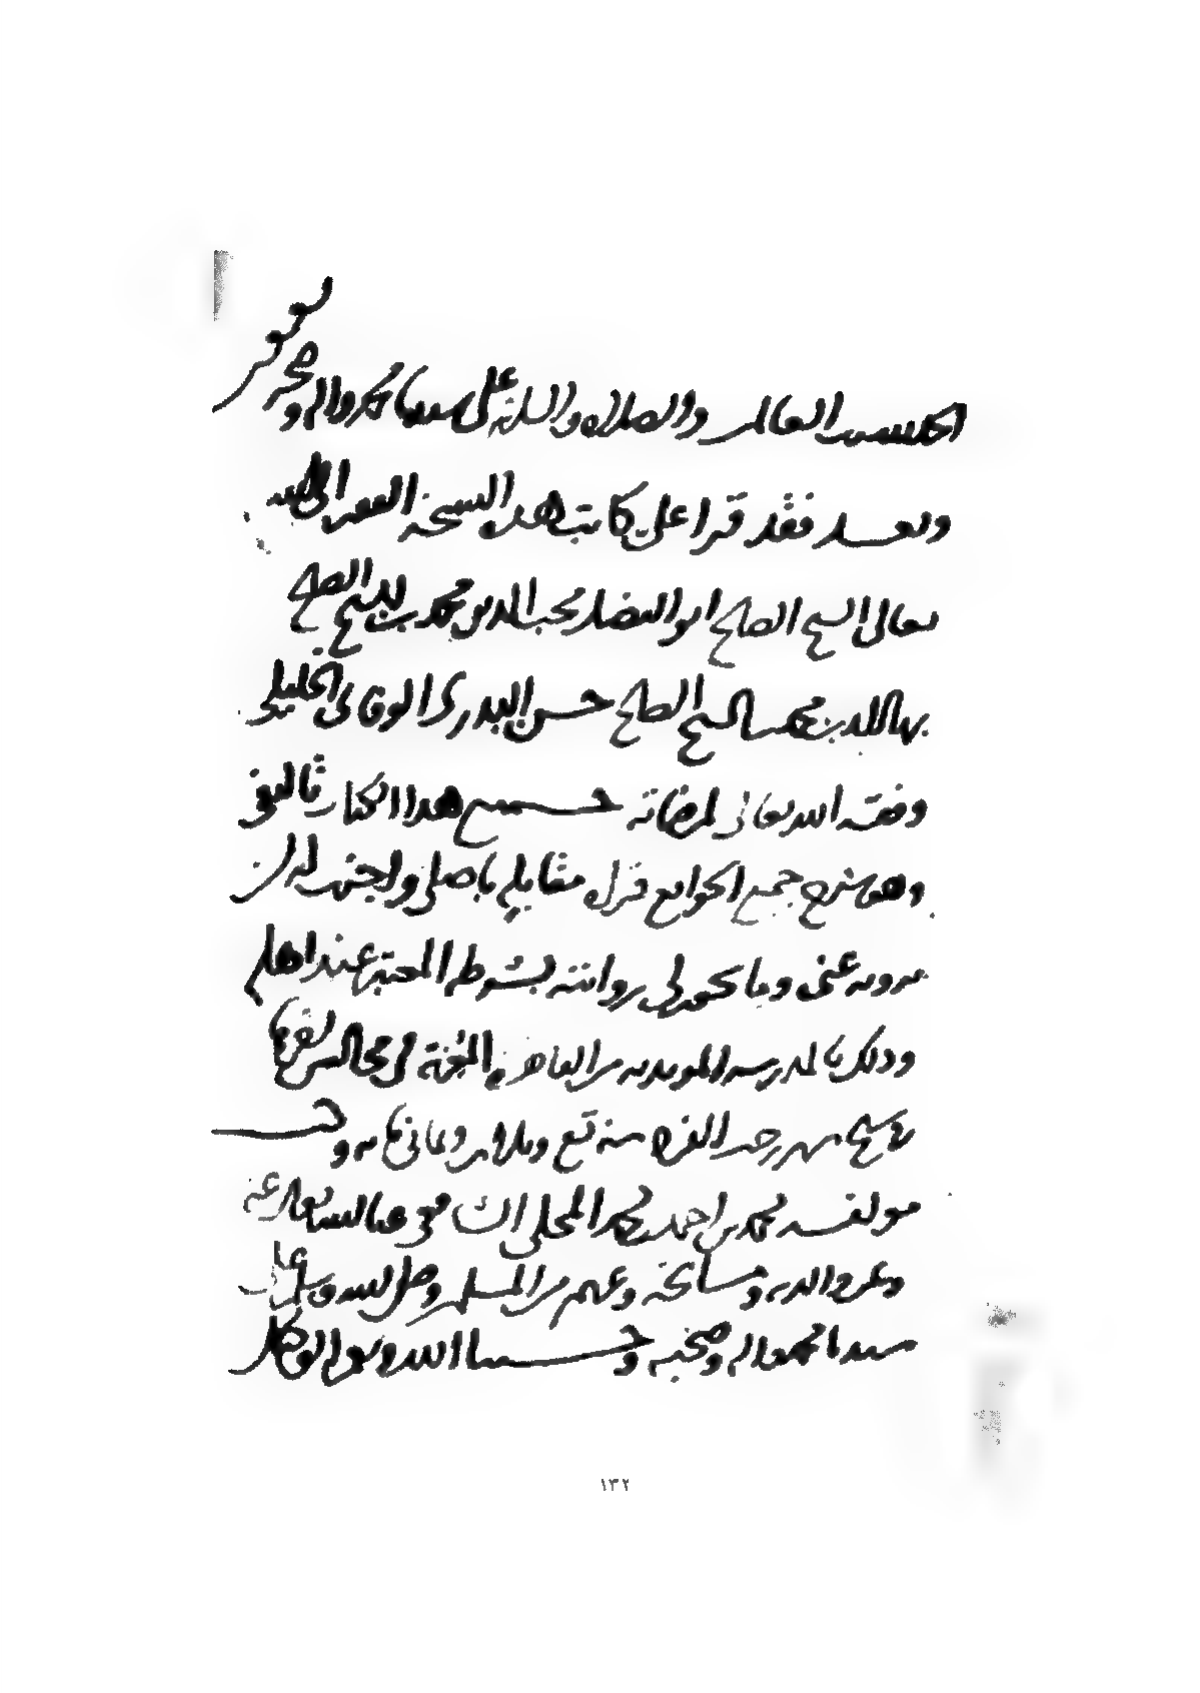 الحمد لله رب العالمين والصلاة والسلام على سيدنا محمد وآله وصحبه
وبعد فقد قرأ علي كاتب هذه النسخة الفقير إلى الله
تعالى الشيخ الصالح أبو الفضل محب الدين محمد بن الشيخ الصالح
بهاء الدين محمد بن الشيخ الصالح حسن البدري الوفائي
وفقه الله تعالى لمرضاته جميع هذا الكتاب تأليفي
وهو شرح جمع الجوامع قراءة مقابلة بأصلي وأجزت له أن
يرويه عني وما يجوز لي روايته بشرطه المعتبر عند أهله
وذلك بالمدرسة المؤيدية من القاهرة في مجالس
شهر رجب الفرد سنة تسع وثلاثين وثمانمائة وكتب
مؤلفه محمد بن أحمد بن محمد المحلي الشافعي عفا الله تعالى عنه
وعن والديه ومشايخه وعنهم من المسلمين وصلى الله وسلم على
سيدنا محمد وآله وصحبه وحسبنا الله ونعم الوكيل
١٣٢